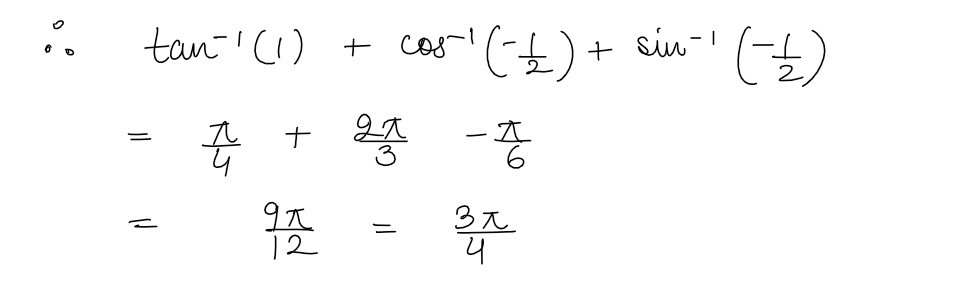 ∴ tan⁻¹(1) + cos⁻¹(-1/2) + sin⁻¹(-1/2)
= π/4 + 2π/3 - π/6
= 9π/12 = 3π/4